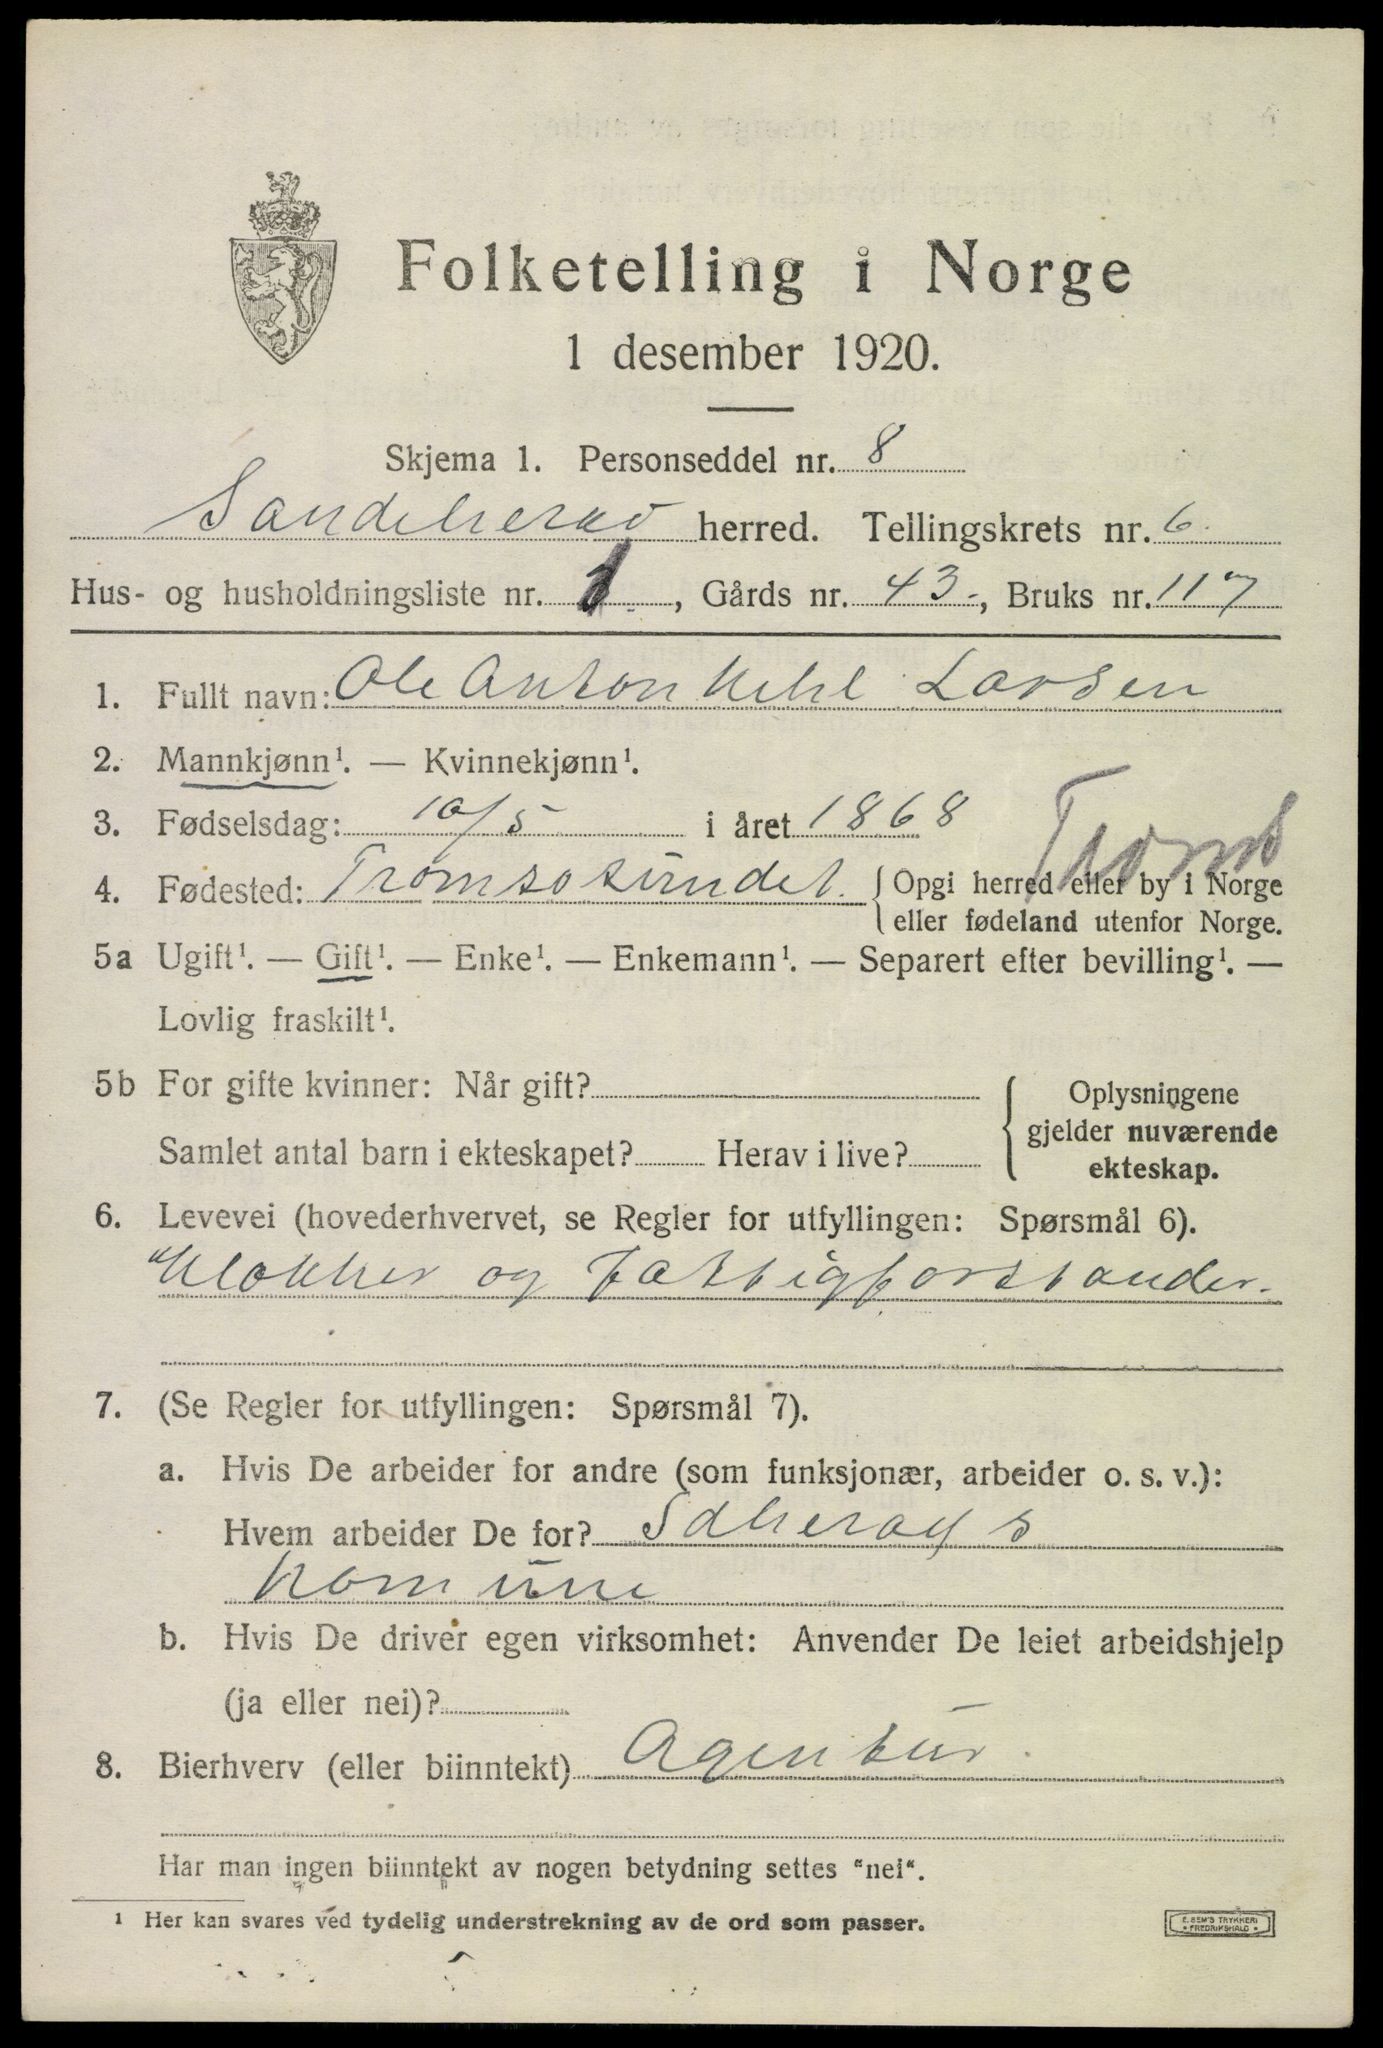 Folketelling i Norge
1 desember 1920.
Skjema 1. Personseddel nr. 8
Sandeherad herred. Tellingskrets nr. 6.
Hus- og husholdningsliste nr. 1., Gårds nr. 43., Bruks nr. 117
1. Fullt navn: Ole Anton Kehl Larsen
2. Mannkjønn¹. — Kvinnekjønn¹.
3. Fødselsdag: 10/5 i året 1868
Troms
4. Fødested: Tromsøsundet. { Opgi herred eller by i Norge
eller fødeland utenfor Norge.
5a Ugift¹. — Gift¹. — Enke¹. — Enkemann¹. — Separert efter bevilling¹. —
Lovlig fraskilt¹.
5b For gifte kvinner: Når gift?
Samlet antal barn i ekteskapet? Herav i live?
{ Oplysningene
gjelder nuværende
ekteskap.
6. Levevei (hovederhvervet, se Regler for utfyllingen: Spørsmål 6).
Klokker og Fattigforstander.
7. (Se Regler for utfyllingen: Spørsmål 7).
a. Hvis De arbeider for andre (som funksjonær, arbeider o. s. v.):
Hvem arbeider De for? Sdherads
Komune
b. Hvis De driver egen virksomhet: Anvender De leiet arbeidshjelp
(ja eller nei)?
8. Bierhverv (eller biinntekt) Agentur.
Har man ingen biinntekt av nogen betydning settes "nei".
¹ Her kan svares ved tydelig understrekning av de ord som passer.
E. SEM'S TRYKKERI
* FREDRIKSHALD *